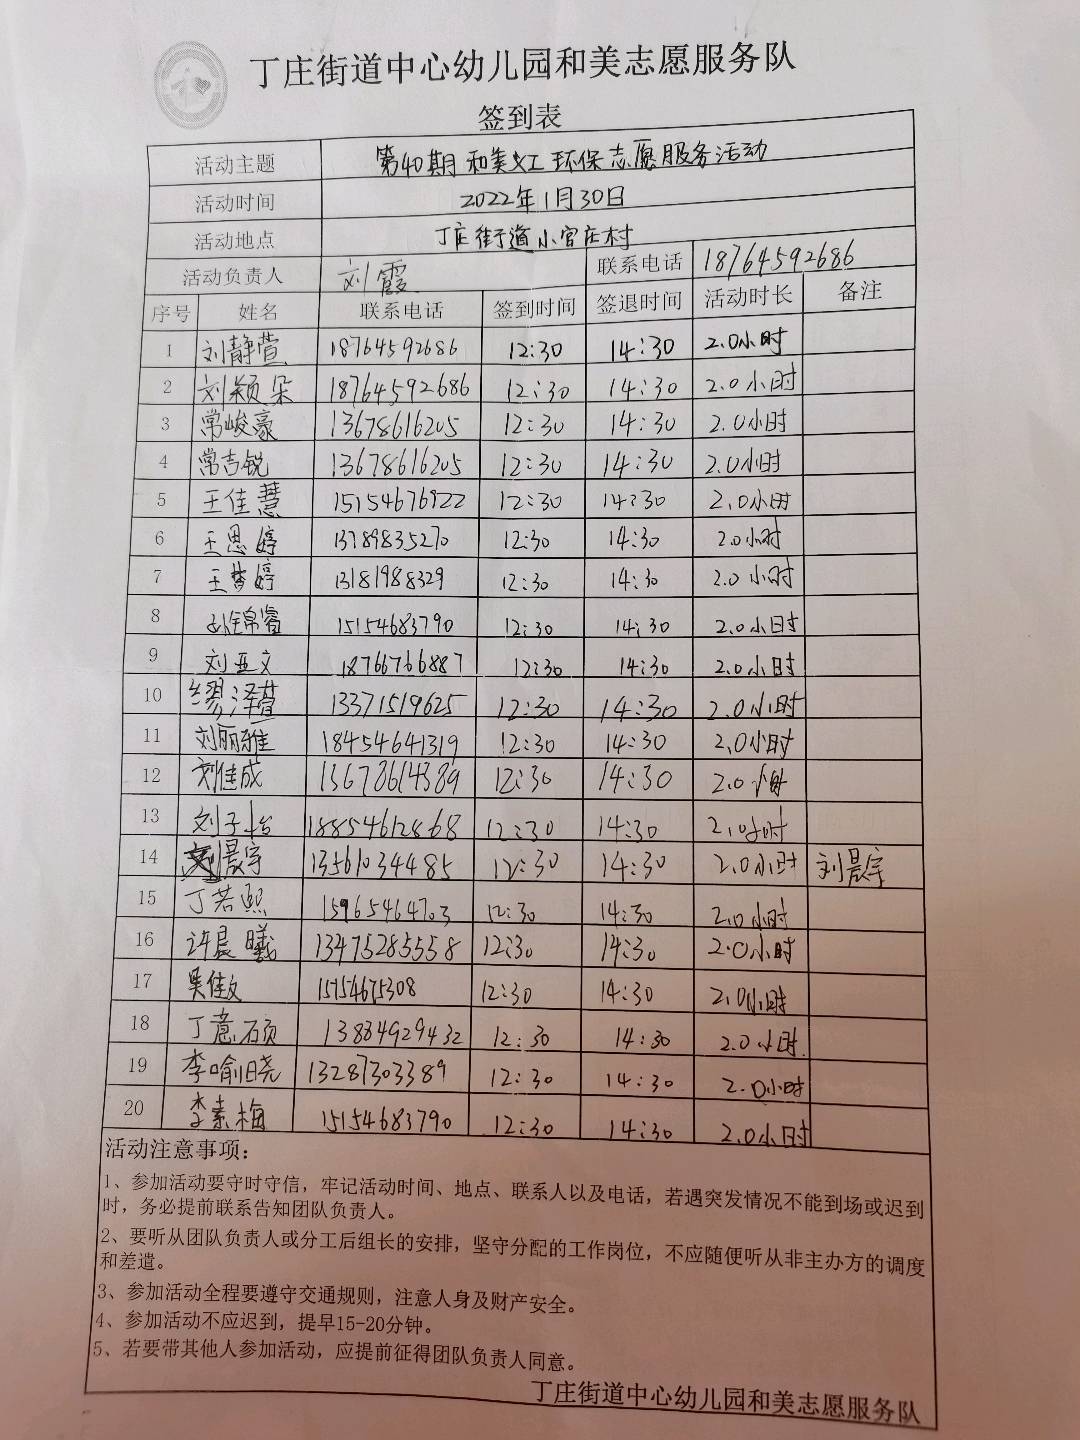 丁庄街道中心幼儿园和美志愿服务队
签到表
活动主题 第40期和美义工环保志愿服务活动
活动时间 2022年1月30日
活动地点 丁庄街道小官庄村
活动负责人 刘霞 联系电话 18764592686
序号 姓名 联系电话 签到时间 签退时间 活动时长 备注
1 刘静萱 18764592686 12:30 14:30 2.0小时
2 刘颖朵 18764592686 12:30 14:30 2.0小时
3 常峻豪 13678616205 12:30 14:30 2.0小时
4 常吉锐 13678616205 12:30 14:30 2.0小时
5 王佳慧 15154676922 12:30 14:30 2.0小时
6 王思婷 13789835270 12:30 14:30 2.0小时
7 王梦婷 13181988329 12:30 14:30 2.0小时
8 15154683790 12:30 14:30 2.0小时
9 刘亚文 18766766887 12:30 14:30 2.0小时
10 缪泽萱 13371519625 12:30 14:30 2.0小时
11 刘丽雅 18454641319 12:30 14:30 2.0小时
12 刘佳成 13678614389 12:30 14:30 2.0小时
13 刘子 18854612868 12:30 14:30 2.0小时
14 刘晨宇 13561034485 12:30 14:30 2.0小时 刘晨宇
15 丁若熙 15965464703 12:30 14:30 2.0小时
16 许晨曦 13475285558 12:30 14:30 2.0小时
17 吴佳文 15154675308 12:30 14:30 2.0小时
18 丁意硕 13834929432 12:30 14:30 2.0小时
19 李喻晓 13287303389 12:30 14:30 2.0小时
20 李素梅 15154683790 12:30 14:30 2.0小时
活动注意事项：
1、参加活动要守时守信，牢记活动时间、地点、联系人以及电话，若遇突发情况不能到场或迟到
时，务必提前联系告知团队负责人。
2、要听从团队负责人或分工后组长的安排，坚守分配的工作岗位，不应随便听从非主办方的调度
和差遣。
3、参加活动全程要遵守交通规则，注意人身及财产安全。
4、参加活动不应迟到，提早15-20分钟。
5、若要带其他人参加活动，应提前征得团队负责人同意。
丁庄街道中心幼儿园和美志愿服务队